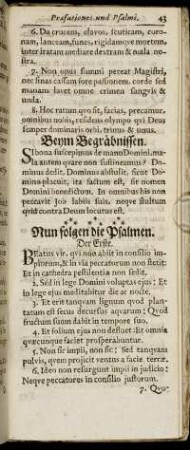 Præfationes und Psalmi. 43
6. Da crucem, clavos, scuticam, coro-
nam, lanceam, funes, rigidamque mortem,
inter iratam mediare dextram & mala no-
stra.
7. Non opus summi peteat Magistri,
nec sinas cassum fore passionem, corde sed
manans lavet omne crimen sangvis &
unda.
8. Hoc ratum quo sit, facias, precamur,
omnibus nobis, residens olympo qvi Deus
semper dominaris orbi, trinus & unus.
Beym Begräbnissen.
SI bona suscepimus de manu Domini, ma-
la autem quare non sustineamus? Do-
minus dedit, Dominus abstulit, sicut Do-
mino placuit, ita factum est, sit nomen
Domini benedictum. In omnibus his non
peccavit Job labiis suis, neqve stultum
quid contra Deum locutus est.
Nun folgen die Psalmen.
Der Erste.
BEatus vir, qvi non abiit in consilio im-
piorum, & in via peccatorum non stetit:
Et in cathedra pestilentiæ non sedit.
2. Sed in lege Domini voluntas ejus: Et
in lege ejus meditabitur die ac nocte.
3. Et erit tanqvam lignum quod plan-
tatum est secus decursus aqvarum: Quod
fructum suum dabit in tempore suo.
4. Et folium ejus non defluet: Et omnia
qvæcunque faciet prosperabuntur.
5. Non sic impii, non sic; Sed tanqvam
pulvis, qvem projicit ventus a facie terræ.
6. Ideo non resurgunt impii in judicio:
Neqve peccatores in consilio justorum.
7. Quo-